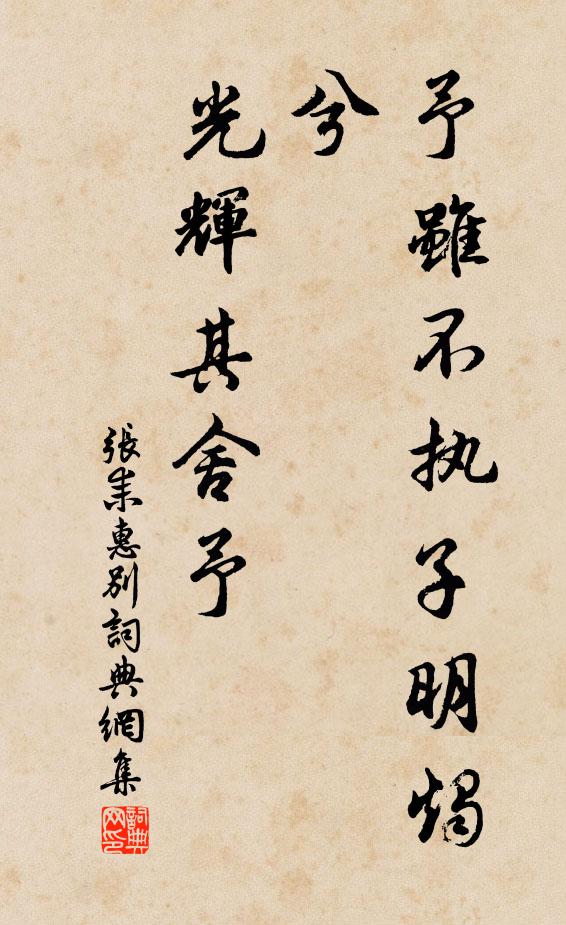 予雖不执子明燭
兮
光輝其舍予
張耒惠别詞典網集
詞典
网印